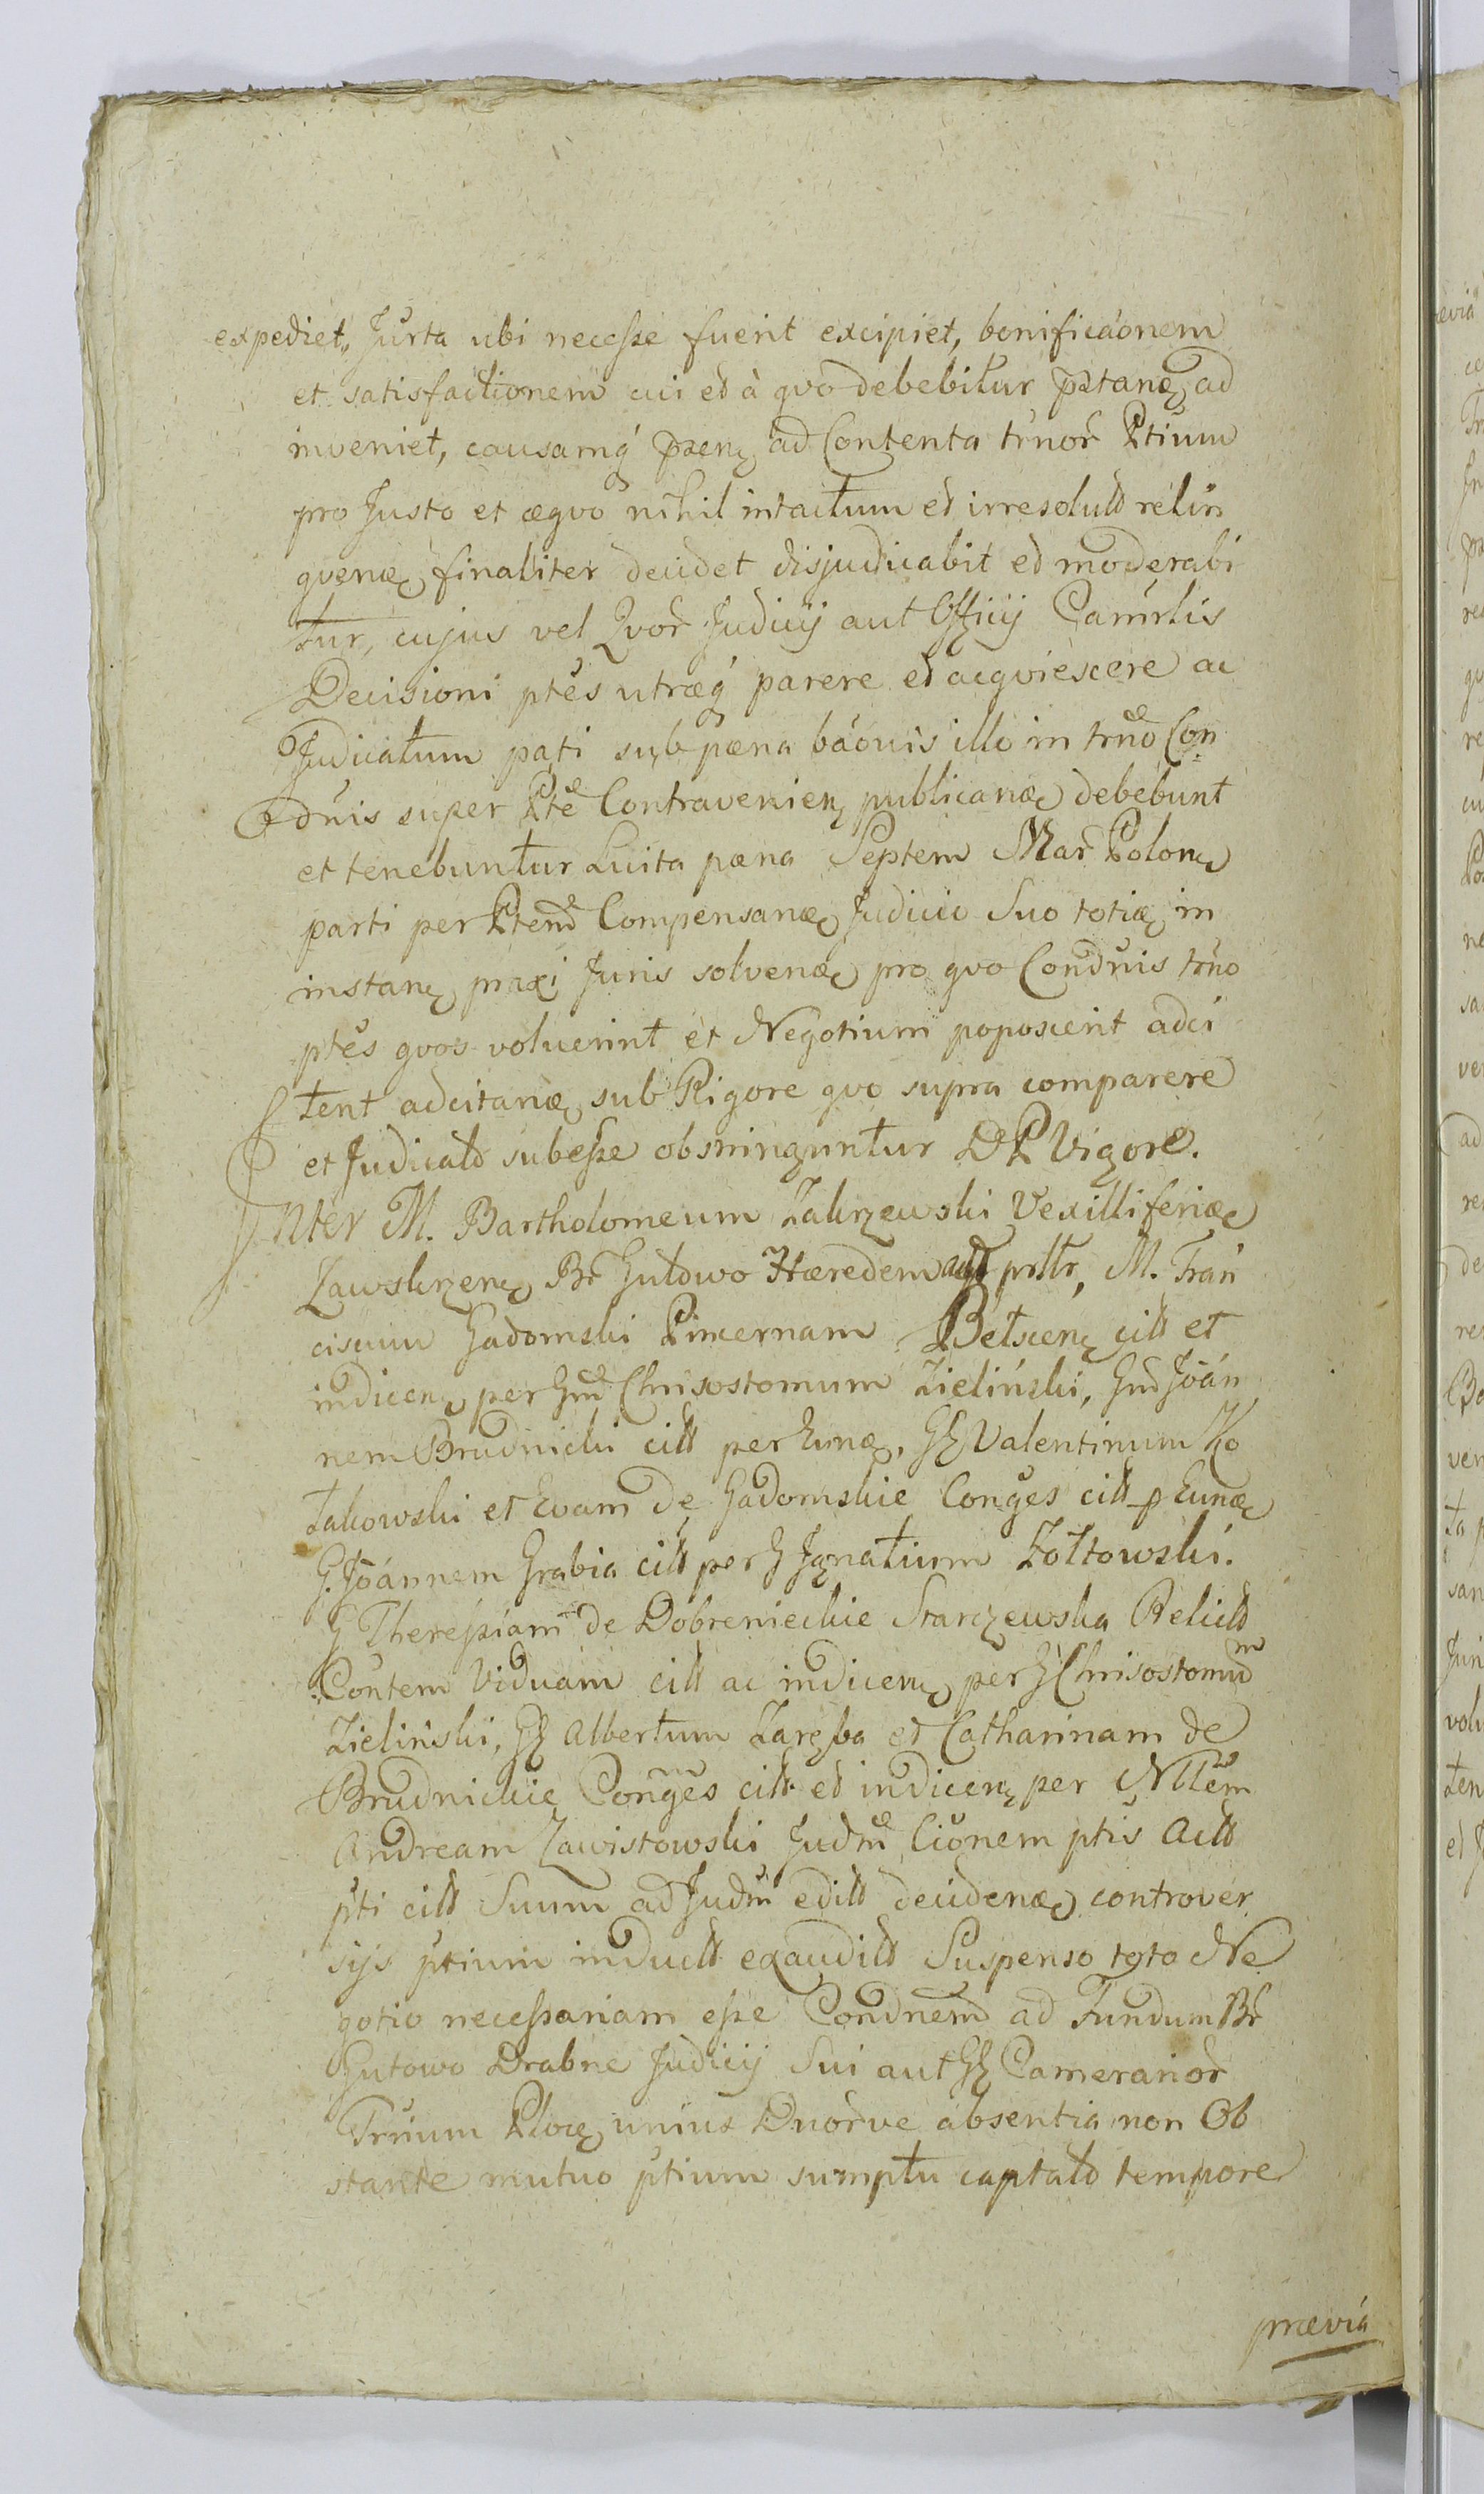 expediet, Jurta ubi necesse fuerit excipiet, bonificãonem
et satisfactionem cui et à qvo debebitur pstanđ ad
inveniet, causamq́ psenꝫ ad Contenta trnor Ptium
pro Justo et æqvo nihil intactum et irresolutt relin
qvenđ finaliter decidet disjudicabit et moderabi
tur, cujus vel Qvor Judicij aut Officij Camrlis
Decisioni ptes utræq́ parere et acqviescere ac
Judicatum pati sub pæna bãonis illo in trno Con
dnis super Pte Contravenienꝫ publicanđ debebunt
et tenebuntur Luita pæna Septem Mar Polonꝫ
parti per Ptem Compensanđ Judicio Suo totiđ in
instanꝫ praxi Juris solvenđ pro qvo Condnis trno
ptes qvos voluerint et Negotium poposcerit adci
tent adcitanđ sub Rigore qvo supra comparere
et Judicatt subesse obstringuntur D P Vigore.
Inter M. Bartholomeum Zakrzewski Vexilliferiđ
Zawskrzenꝫ Br Gutowo Hæredem prttr, M. Fran
ciscum Gadomski Pincernam Betscenꝫ citt et
indicenꝫ per Gm Chrisostomum Zieliński, Gm Joan
nem Brudnicki citt per Eunđ, GG Valentinum Ko
żakowski et Evam de Gadomskie Conges citt p Eunđ
G. Joannem Grabia citt per G Ignatium Żołtowski.
G Theresiam de Dobrenieckie Starczewska Relictt
Contem Viduam citt ac indicenꝫ per G Chrisostomum
Zieliński, GG Albertum Zaręba et Catharinam de
Brudnickie Conges citt et indicenꝫ per Nblem
Andream Zawistowski Judm Cionem ptis Actt
pti citt Suum ad Judm editt decidenđ controver
sijs ptium inductt exauditt Suspenso toto Ne
gotio necessariam esse Condnem ad Fundum Br
Gutowo Drabne Judicij Sui aut GG Camerarior
Trrium Plocꝫ unius Duorve absentia non Ob
stante mutuo ptium sumptu captatt tempore
prævia